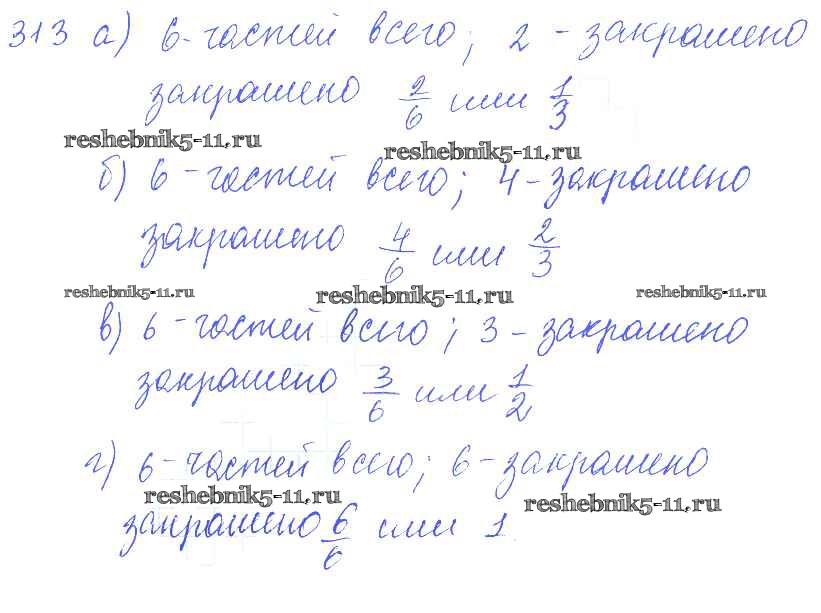 313 а) 6-частей всего; 2 - закрашено
закрашено 2/6 или 1/3
reshebnik5-11.ru
reshebnik5-11.ru
б) 6 - частей всего; 4 - закрашено
закрашено 4/6 или 2/3
reshebnik5-11.ru reshebnik5-11.ru reshebnik5-11.ru
в) 6 - частей всего; 3 - закрашено
закрашено 3/6 или 1/2
г) 6 - частей всего; 6 - закрашено
reshebnik5-11.ru
reshebnik5-11.ru
закрашено 6/6 или 1